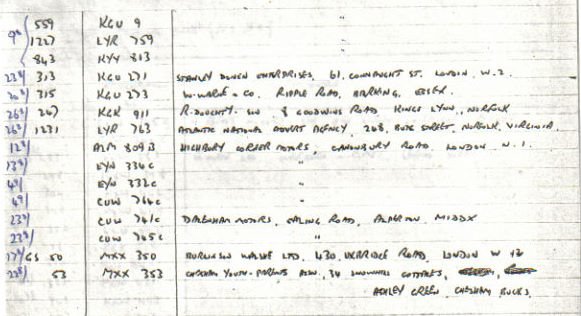 559 KGU 9 "
9th 1227 LYR 759
843 KYY 813 "
23rd 313 KGU 271 STANLEY DONEN ENTERPRISES, 61, CONNAUGHT ST. LONDON, W.2.
315 KGU 273 W. WARE & CO. RIPPLE ROAD, BARKING, ESSEX.
26th 247 KGK 911 R. DOUGHTY-SON 8 GOODWINS ROAD, KINGS LYNN, NORFOLK
26th 1231 LYR 763 ATLANTIC NATIONAL ADVERT AGENCY, 268, BUTE STREET, NORFOLK, VIRGINIA
12th ALM 809B HIGHBURY CORNER MOTORS, CANONBURY ROAD, LONDON N.1.
13th EYN 336C "
4th EYN 332C "
4th CUW 764C "
23rd CUW 741C DAGENHAM MOTORS, EALING ROAD, ALPERTON MIDDX
23rd CUW 765C "
17th GS 50 MXX 350 LTD, 430, UXBRIDGE ROAD, LONDON W 12
53 MXX 353 CHESHAM YOUTH-PARENTS ASSN, 34 COTTAGES,
ASHLEY GREEN, CHESHAM, BUCKS.